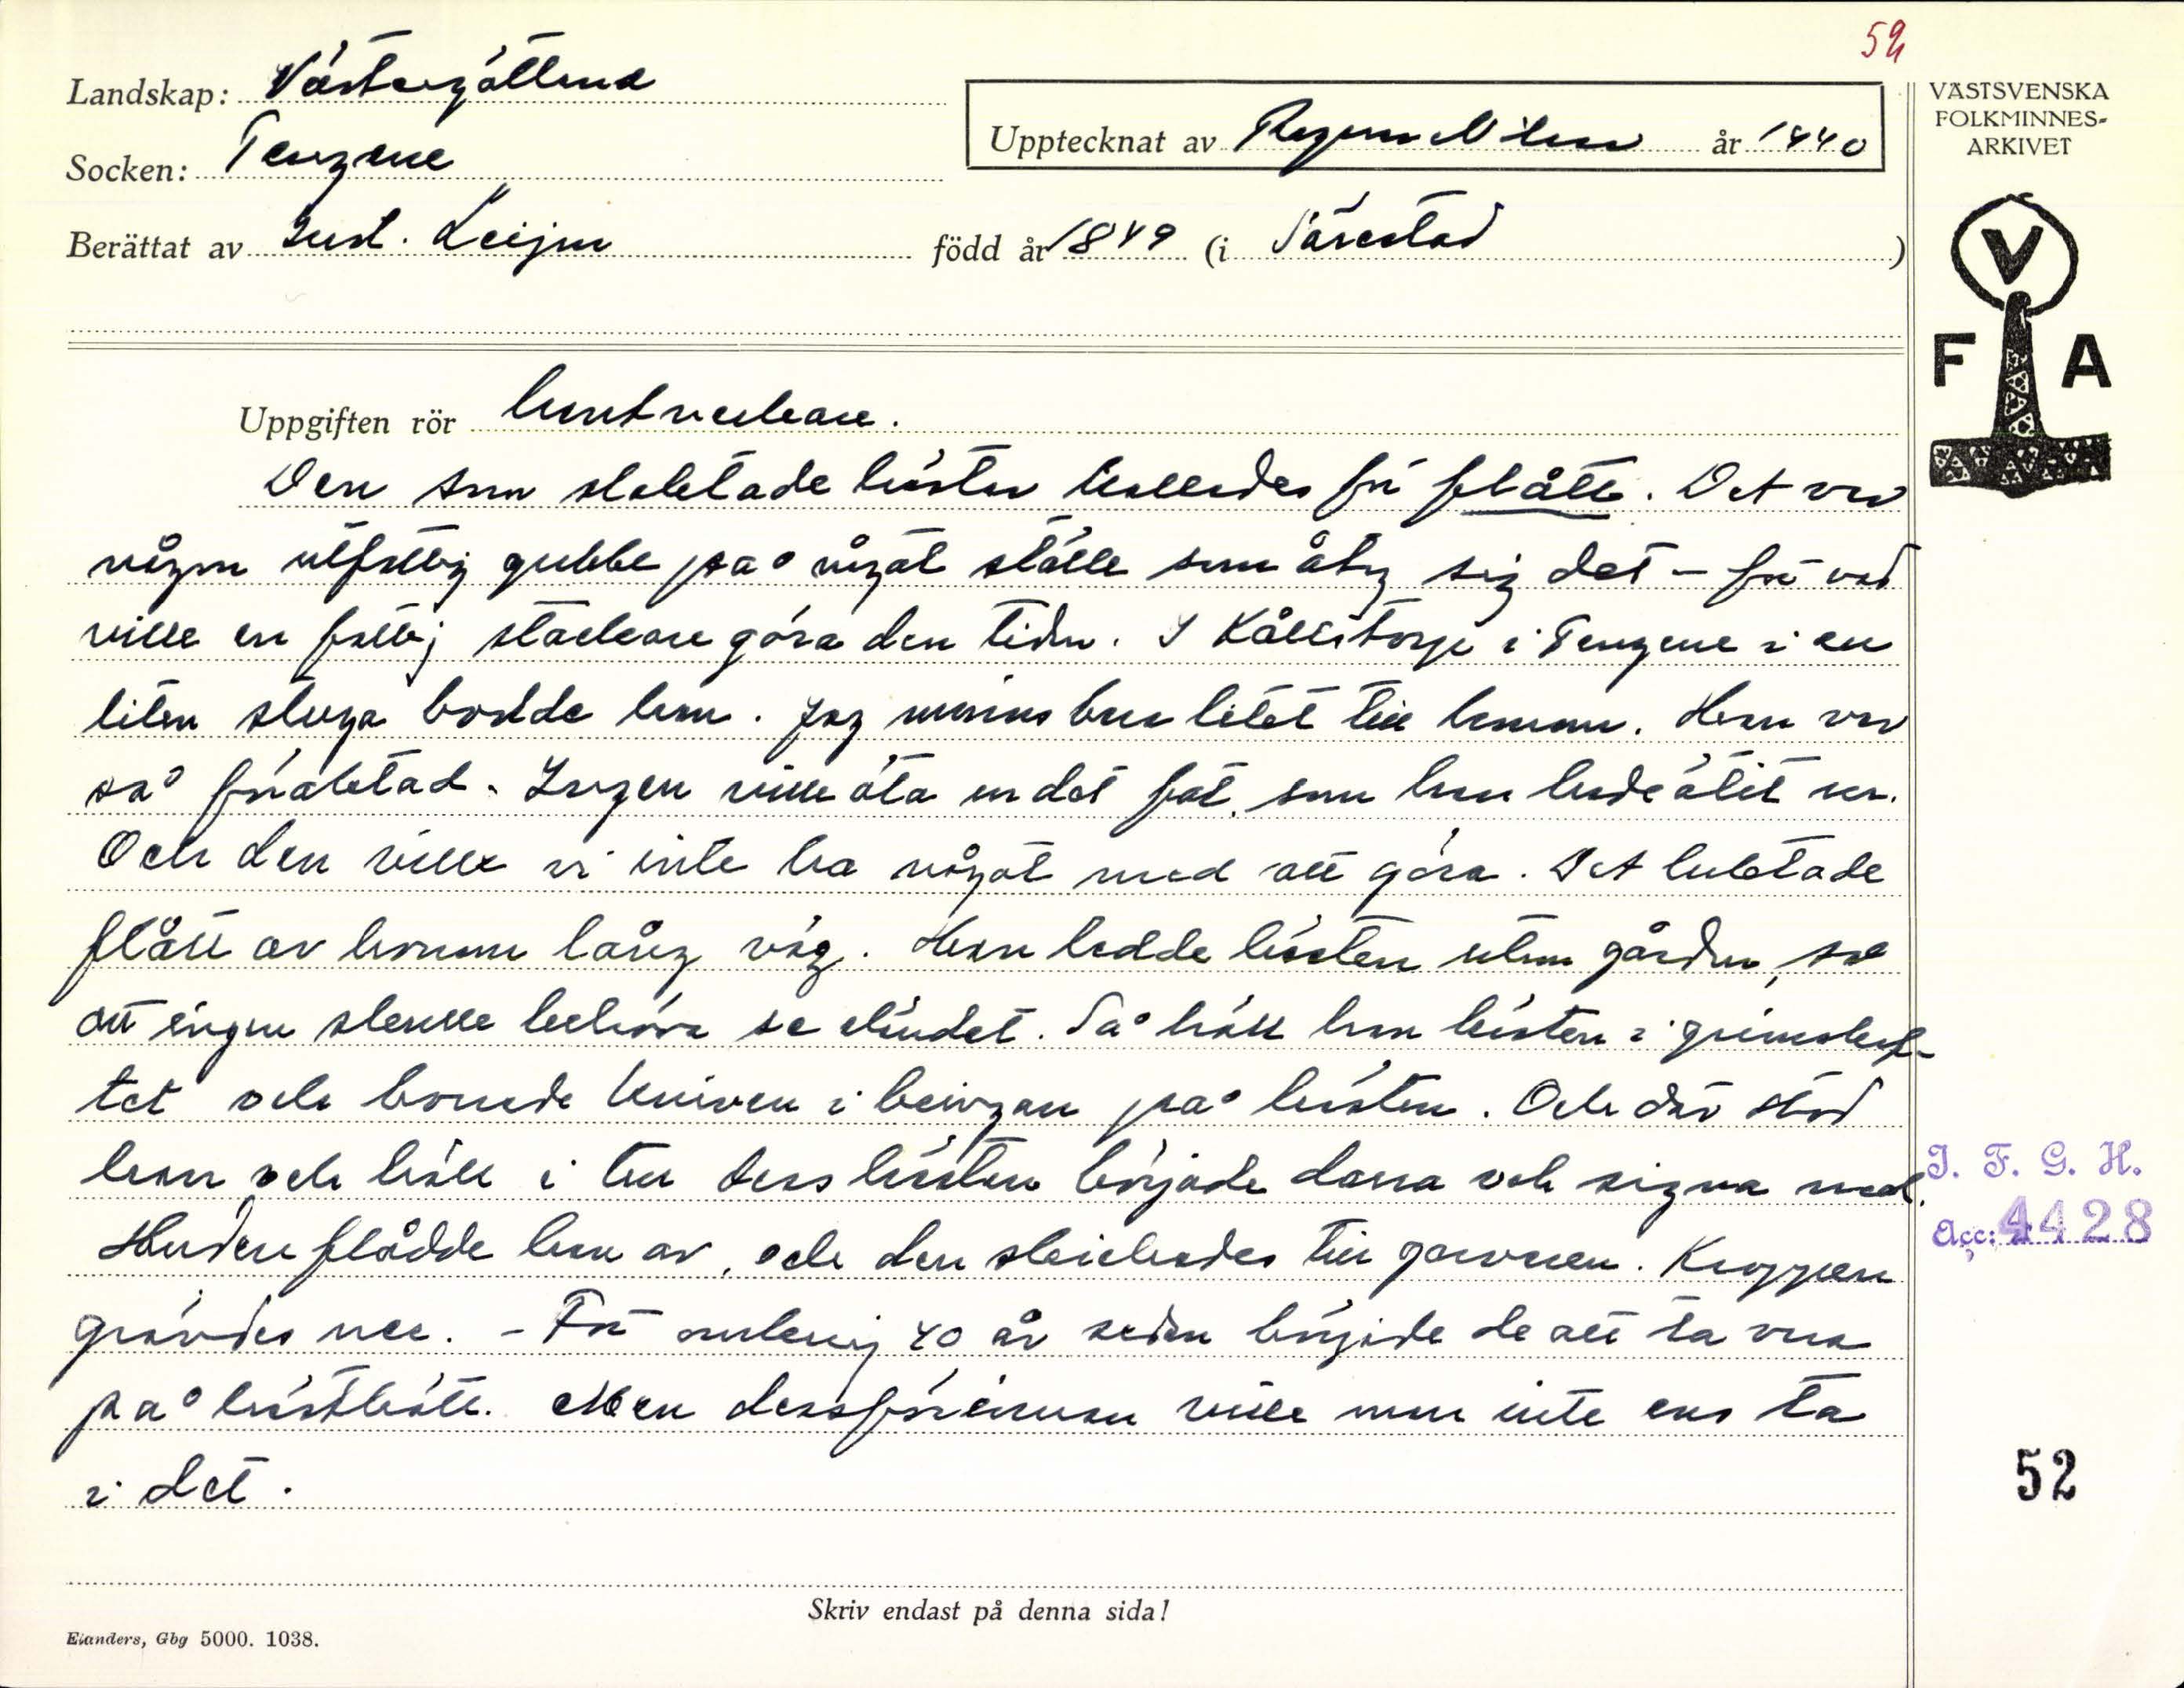 52
Landskap: Västergötland
Upptecknat av Ragnar Nilsson år 1940
VÄSTSVENSKA
FOLKMINNES-
ARKIVET
Socken: Tengene
Berättat av Gust. Leijon född år 1849 (i Särestad)
V
F A
Uppgiften rör hantverkare.
Den som slaktade hästar kallades för flått. Det var
någon utfattig gubbe på något ställe som åtog sig det – för vad
ville en fattig stackare göra den tiden. I Källstorp i Tengene i en
liten stuga bodde han. Jag minns bra litet till honom. Han var
så föraktad. Ingen ville äta ur det fat, som han hade ätit ur.
Och den ville vi inte ha något med att göra. Det luktade
flått av honom lång väg. Han ledde hästen utom gården, så
att ingen skulle behöva se eländet. Så höll han hästen i grimskaf-
tet och borrade kniven i bringan på hästen. Och där stod
han och höll i till dess hästen började darra och signa ned.
Huden flådde han av, och den skickades till garvaren. Kroppen
grävdes ner. – För omkring 40 år sedan började de att ta vara
på hästkött. Men dessförinnan ville man inte ens ta
i det.
I. F. G. H.
Acc: 4428
52
Skriv endast på denna sida!
Elanders, Gbg 5000. 1038.